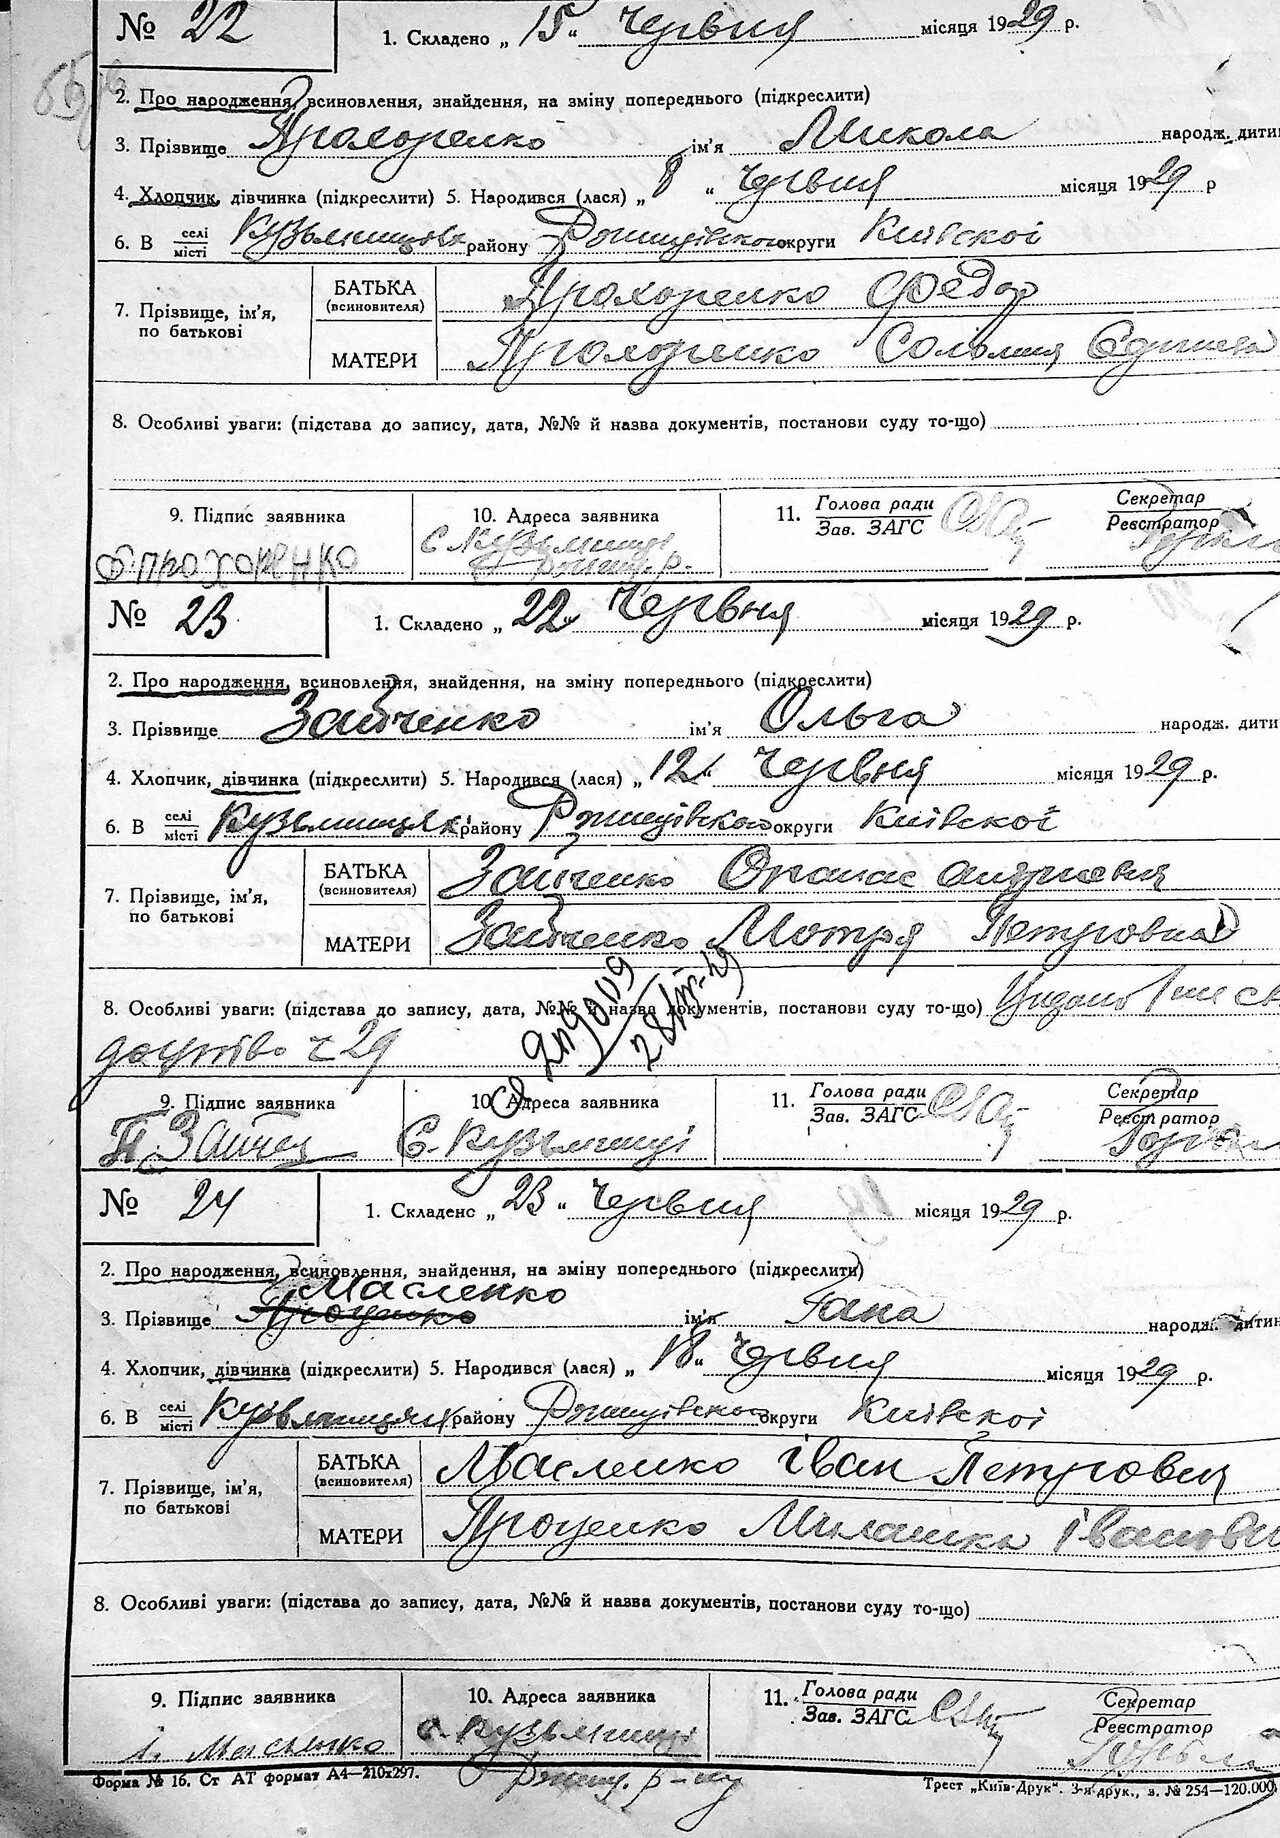 № 22 1. Складено „ 15 “ Червня місяця 1929 р.
2. Про народження, всиновлення, знайдення, на зміну попереднього (підкреслити)
3. Прізвище Прохоренко ім'я Микола народж. дитин
4. Хлопчик, дівчинка (підкреслити) 5. Народився (лася) „ 8 “ Червня місяця 1929 р
6. В селі/місті району округи Київскої
7. Прізвище, ім'я, по батькові
БАТЬКА (всиновителя) Прохоренко Федор
МАТЕРИ Прохоренко
8. Особливі уваги: (підстава до запису, дата, №№ й назва документів, постанови суду то-що)
9. Підпис заявника 10. Адреса заявника 11. Голова ради Секретар
Зав. ЗАГС Реєстратор
Ф. ПРОХОРЕНКО с Кузьминці
р.
№ 23 1. Складено „ 22 “ Червня місяця 1929 р.
2. Про народження, всиновлення, знайдення, на зміну попереднього (підкреслити)
3. Прізвище Зайченко ім'я Ольга народж. дити
4. Хлопчик, дівчинка (підкреслити) 5. Народився (лася) „ 12 “ Червня місяця 1929 р.
6. В селі/місті Кузьминцях району округи Київскої
7. Прізвище, ім'я, по батькові
БАТЬКА (всиновителя) Зайченко Опанас
МАТЕРИ Зайченко Мотря Петровна
8. Особливі уваги: (підстава до запису, дата, №№ й назва документів, постанови суду то-що)
29
9. Підпис заявника 10. Адреса заявника 11. Голова ради Секретар
Зав. ЗАГС Реєстратор
С. Кузьминці
№ 24 1. Складено „ 23 “ Червня місяця 1929 р.
2. Про народження, всиновлення, знайдення, на зміну попереднього (підкреслити)
Масленко
3. Прізвище Проценко ім'я Гана народж. дитин
4. Хлопчик, дівчинка (підкреслити) 5. Народився (лася) „ 18 “ Червня місяця 1929 р.
6. В селі/місті району округи Київскої
7. Прізвище, ім'я, по батькові
БАТЬКА (всиновителя) Масленко Іван Петрович
МАТЕРИ Проценко Милашка
8. Особливі уваги: (підстава до запису, дата, №№ й назва документів, постанови суду то-що)
9. Підпис заявника 10. Адреса заявника 11. Голова ради Секретар
Зав. ЗАГС Реєстратор
І. Масленко с. Кузьминці
Форма № 16. Ст АТ формат А4—210x297. Трест „Київ-Друк“. 3-я друк., з. № 254—120.000